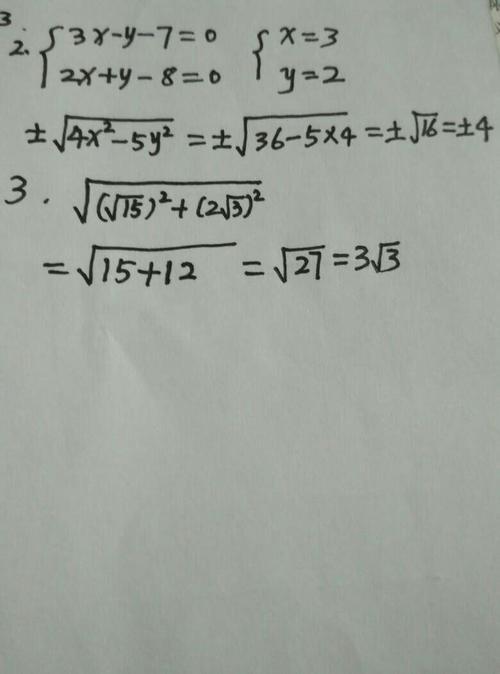 3
2. { 3x-y-7=0 { x=3
2x+y-8=0 y=2
±√(4x²-5y²) = ±√(36-5×4) = ±√16 = ±4
3. √((√15)²+(2√3)²)
= √(15+12) = √27 = 3√3